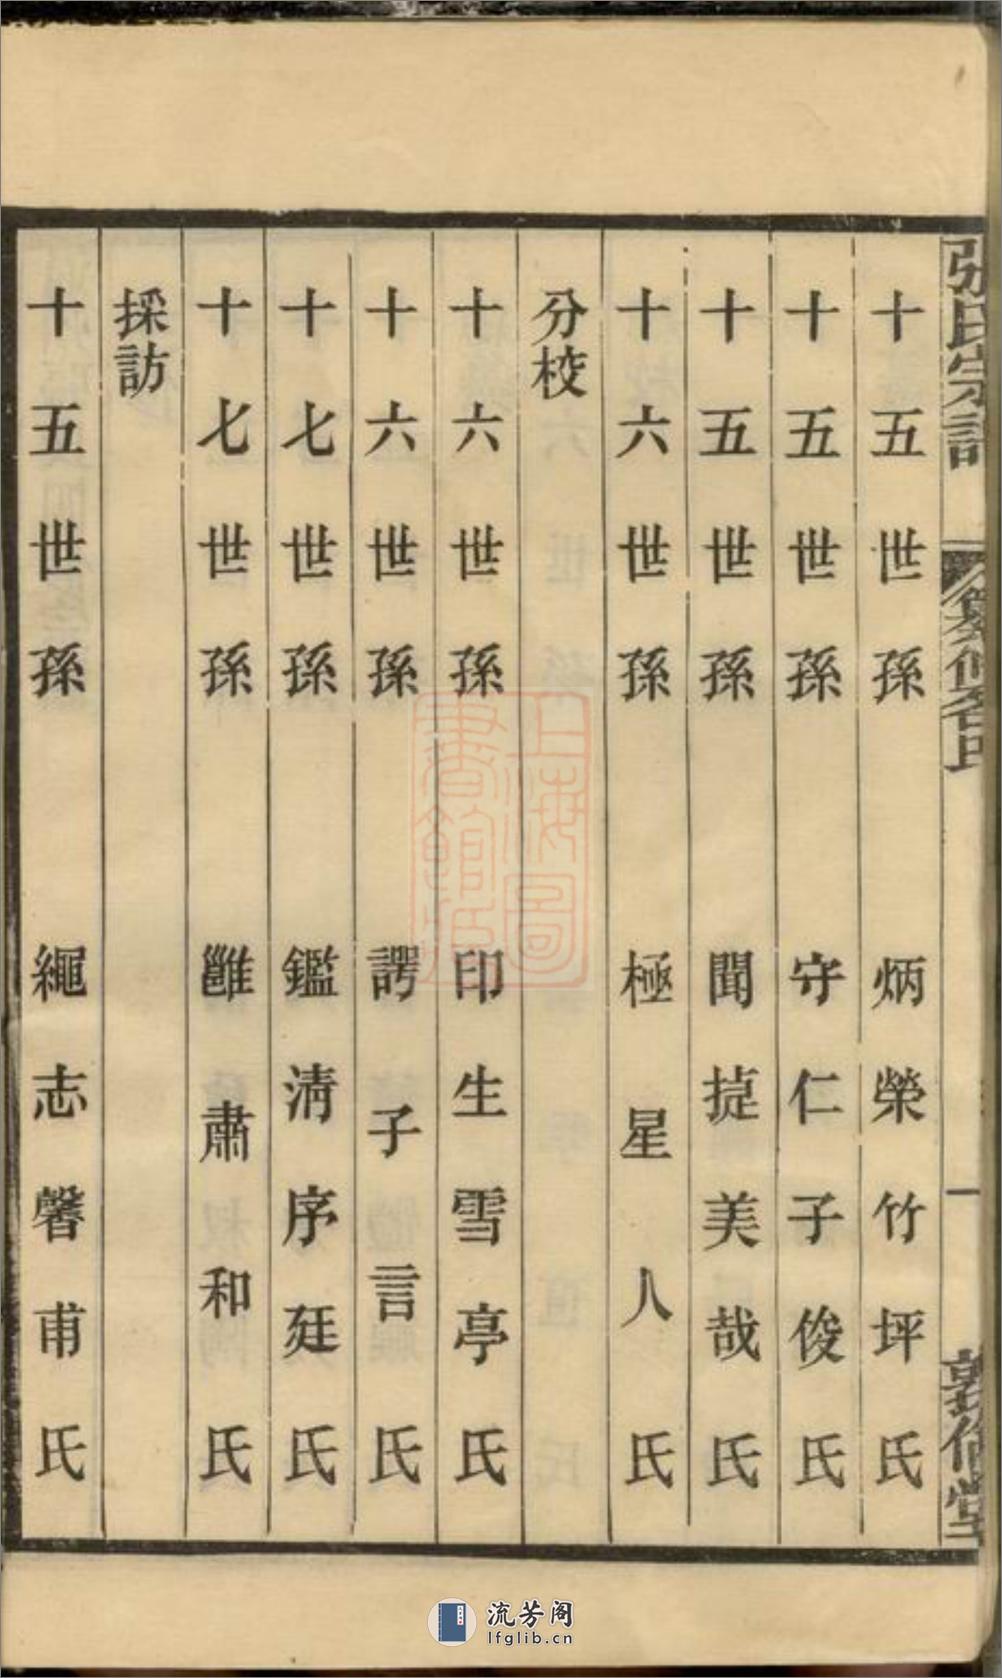 張氏宗譜
纂修名氏
一
敦倫堂
十五世孫 炳榮竹坪氏
十五世孫 守仁子俊氏
十五世孫 聞提美哉氏
十六世孫 極星人氏
分校
十六世孫 印生雪亭氏
十六世孫 諤子言氏
十七世孫 鑑清序廷氏
十七世孫 雝肅和氏
採訪
十五世孫 繩志馨甫氏
上海圖書館藏
流芳阁
lfglib.cn